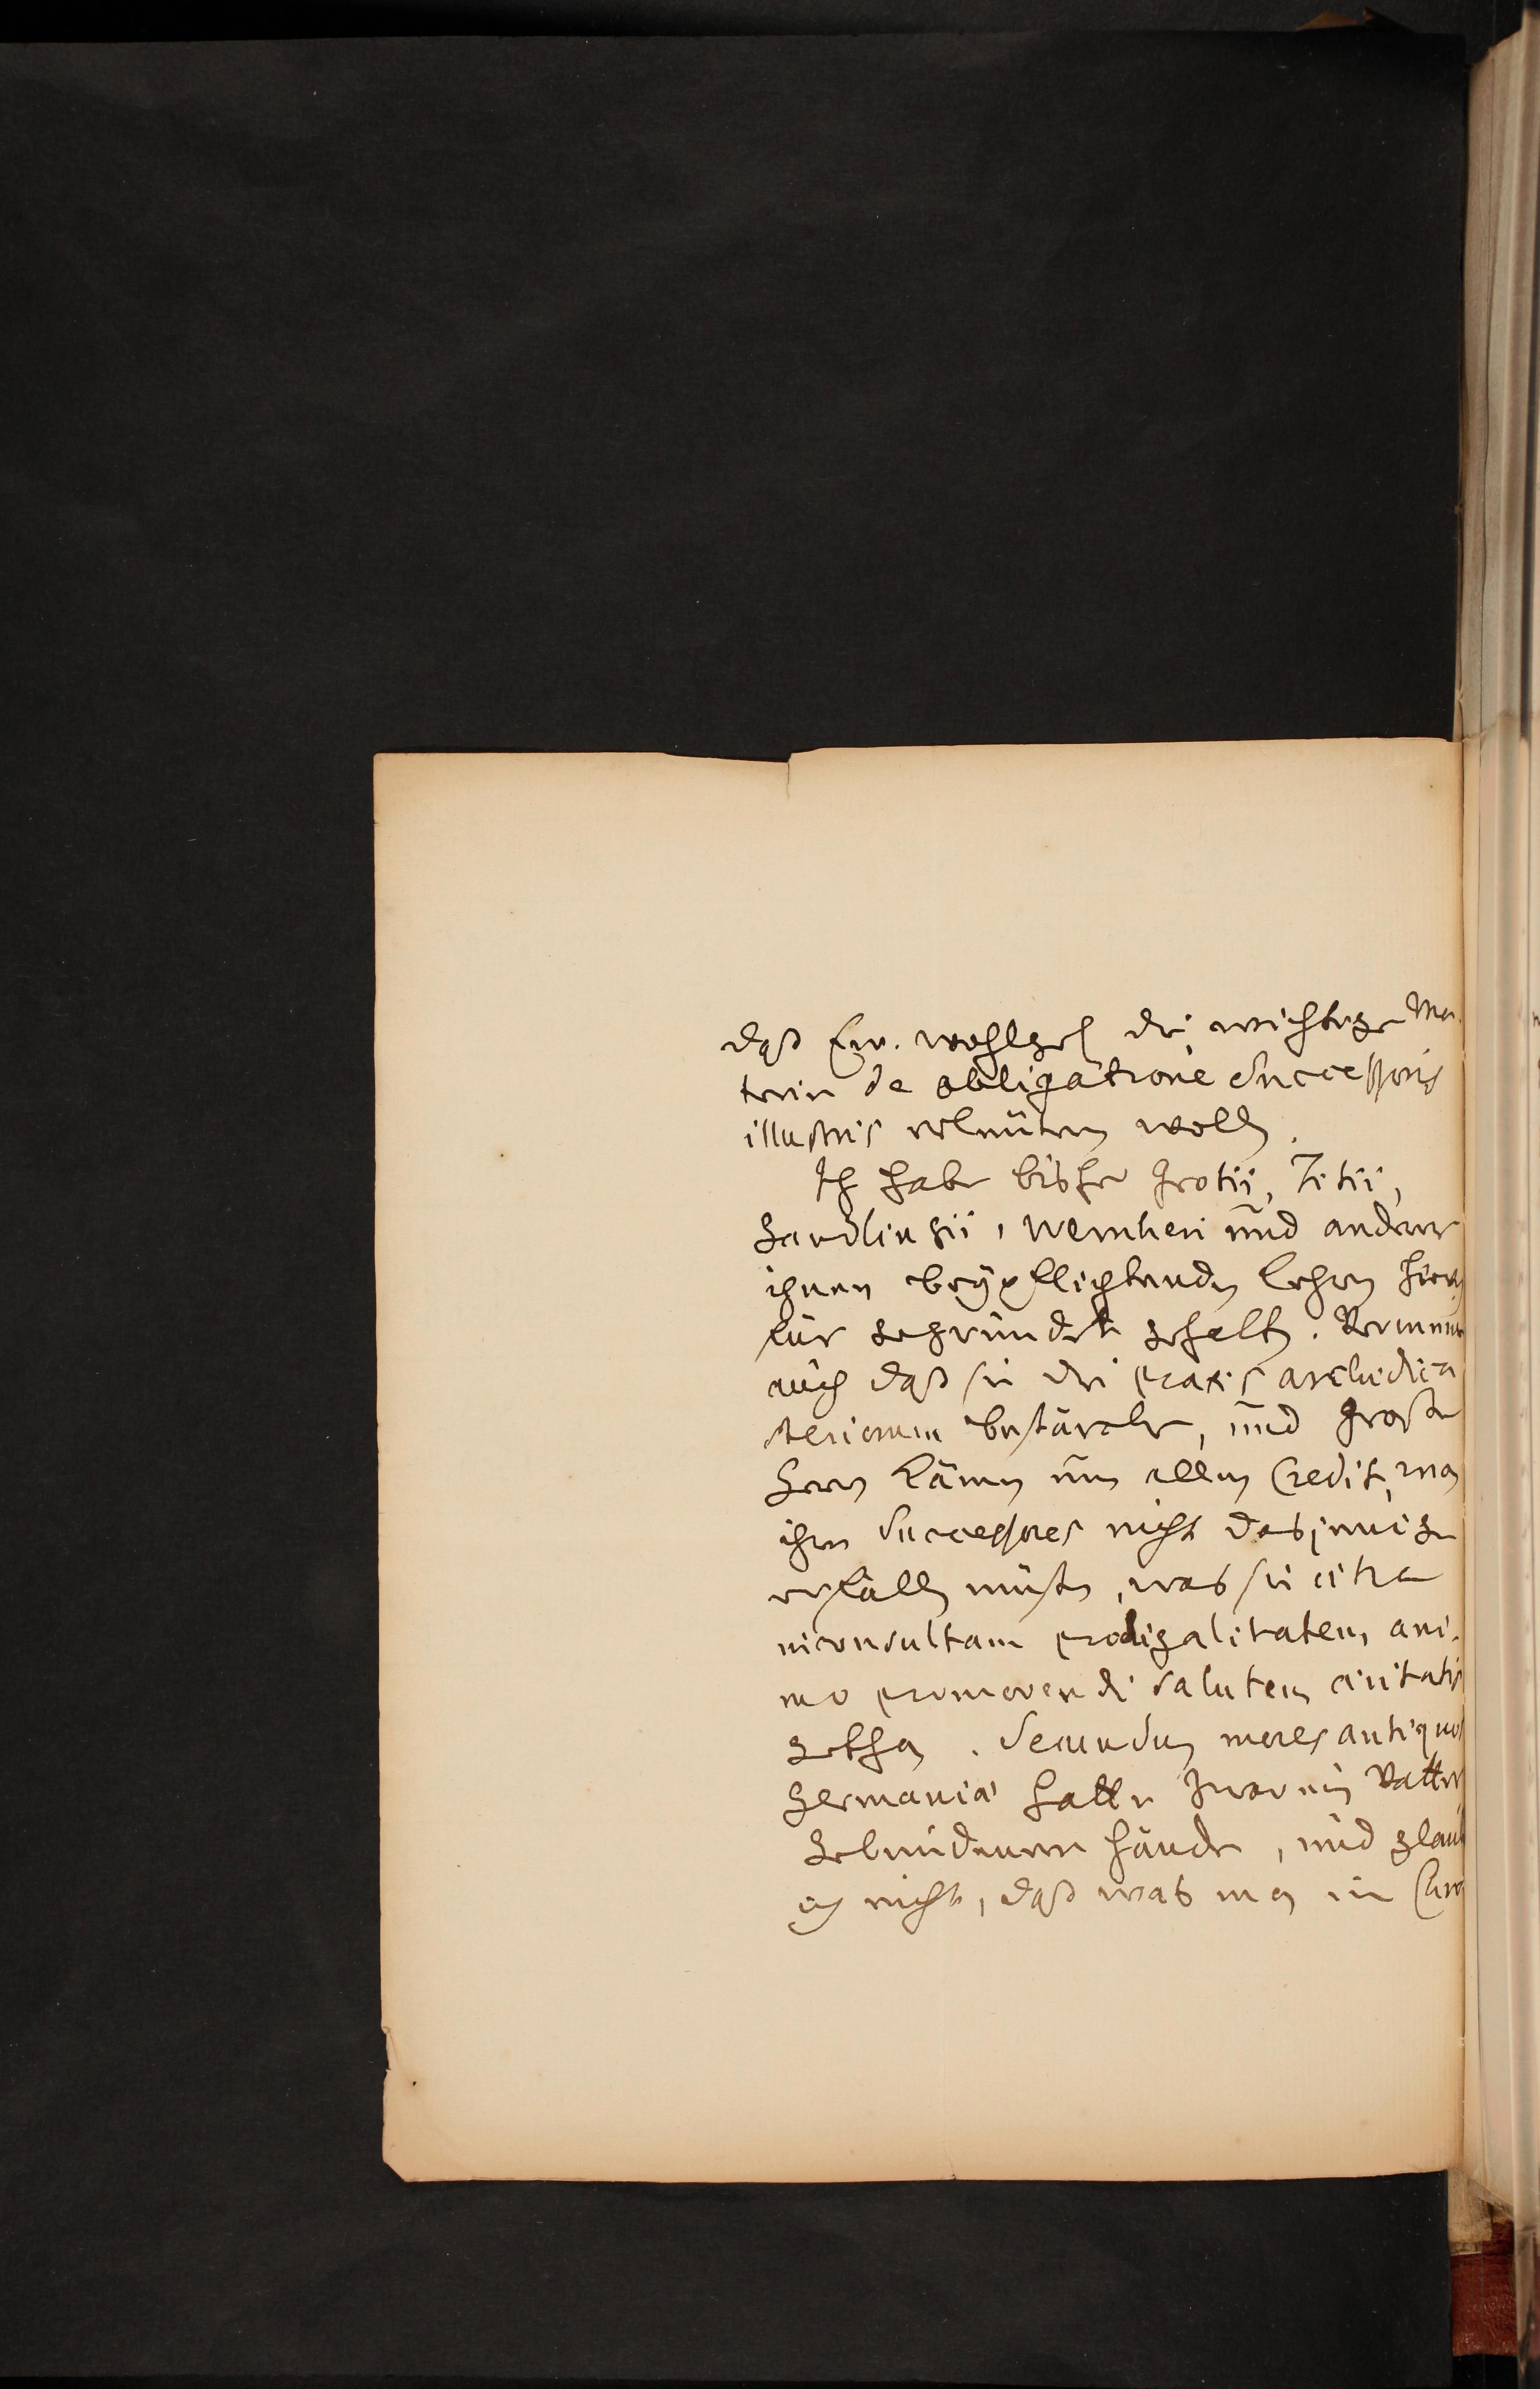 daß Ew. wohlgeb die wichtige Ma-
terie de obligatione Successoris
illustris erleutern wollen.
Ich habe bisher Grotii, Titii,
Gundlingii, Wernheri und anderer
ihnen beypflichtenden Lehren hierin
für gegründet gehalten. Vermeine
auch daß sie die praxis archidica
steriorum bestärcke, und große
Herrn kämen um allen Credit, wen
ihre Successores nicht dasjenige
erfüllen müsten, was sie citra
inconsultam prodigalitatem, ani-
mo promovendi salutem civitatis
gethan. Secundum mores antiquos
Germaniae hatte zwar ein Vatter
gebundenere Hände, und glaub
ich nicht, daß was man in